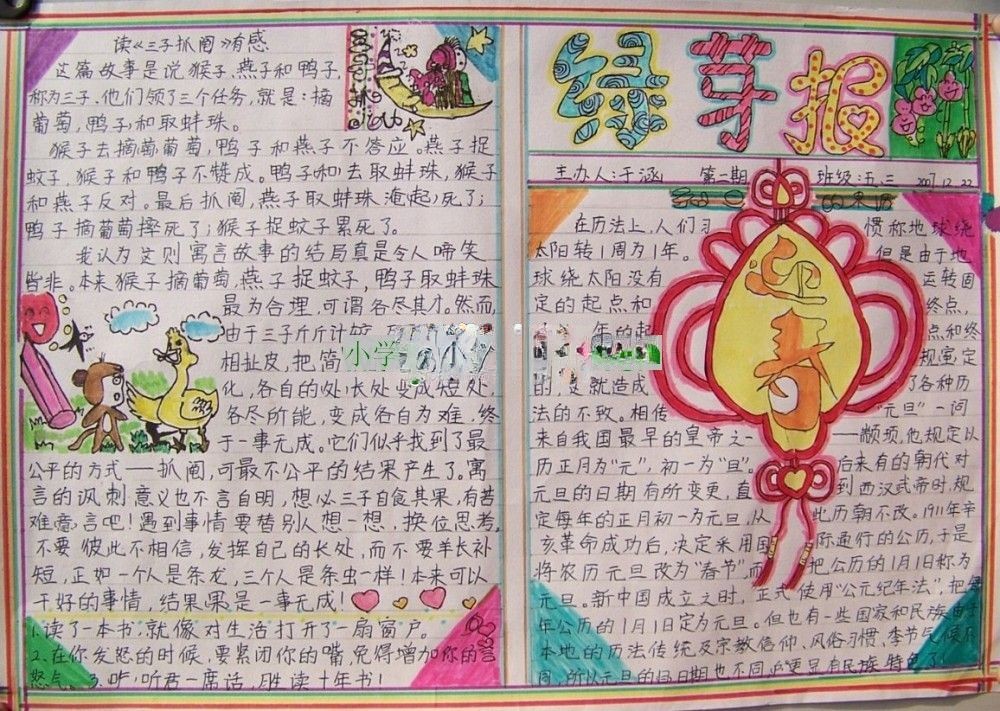 读《三子抓阄》有感
这篇故事是说猴子、燕子和鸭子,
称为三子、他们领了三个任务,就是:摘
葡萄,鸭子和取蚌珠。
猴子去摘葡萄葡萄,鸭子和燕子不答应。燕子捉
蚊子,猴子和鸭子不赞成。鸭子和去取蚌珠,猴子
和燕子反对。最后抓阄,燕子取蚌珠淹起死了;
鸭子摘葡萄摔死了;猴子捉蚊子累死了。
我认为这则寓言故事的结局真是令人啼笑
皆非。本来猴子摘葡萄,燕子捉蚊子,鸭子取蚌珠
最为合理,可谓各尽其才。然而
由于三子斤斤计较
相扯皮,把简
化,各自的处长处变成短处,
各尽所能,变成各自为难,终
于一事无成。它们似乎找到了最
公平的方式——抓阄,可最不公平的结果产生了。寓
言的讽刺意义也不言自明,想必三子自食其果,有苦
难言吧!遇到事情要替别人想一想,换位思考,
不要彼此不相信,发挥自己的长处,而不要羊长补
短,正如一个人是条龙,三个人是条虫一样!本来可以
干好的事情,结果果是一事无成!
1.读了一本书,就像对生活打开了一扇窗户。
2.在你发怒的时候,要紧闭你的嘴,免得增加你的
怒气。3.听君一席话,胜读十年书!
绿芽报
主办人:于涵 第一期 班级:五、三 2007.12.22
迎春
在历法上,人们习惯称地球绕
太阳转1周为1年。但是由于地
球绕太阳没有运转固
定的起点和终点,
年的起点和终
规定
的,这就造成了各种历
法的不致。相传“元旦”一词
来自我国最早的皇帝之一——颛顼,他规定以
历正月为“元”,初一为“旦”。后来有的朝代对
元旦的日期有所变更,直到西汉武帝时,规
定每年的正月初一为元旦,从此历朝不改。1911年辛
亥革命成功后,决定采用国际通行的公历,于是
将农历元旦改为“春节”,而把公历的1月1日称为
元旦。新中国成立之时,正式使用“公元纪年法”,把每
年公历的1月1日定为元旦。但也有一些国家和民族由于
本地的历法传统及宗教信仰、风俗习惯,季节气候不
同,所以元旦的日期也不同
小学